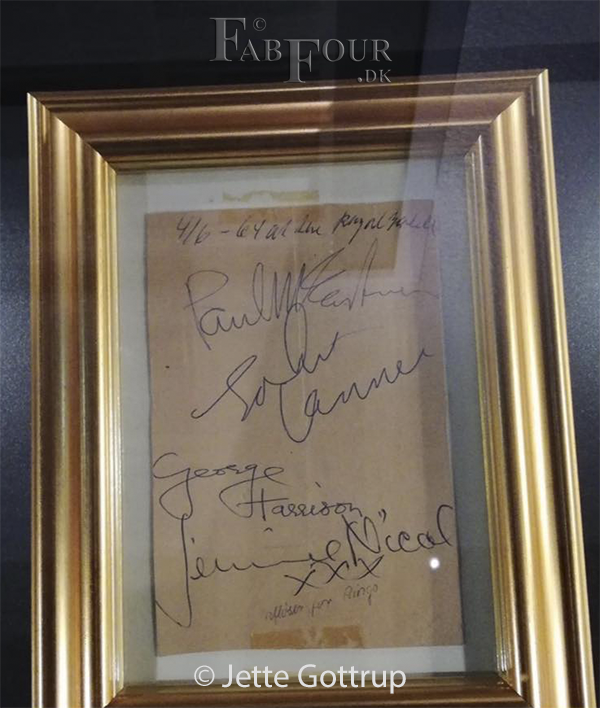 ©
FABFOUR
.DK
4/6 - 64 at the Royal Hotel
Paul McCartney
John Lennon
George
Harrison
Jimmie Nicol
xxx
for Ringo
© Jette Gottrup